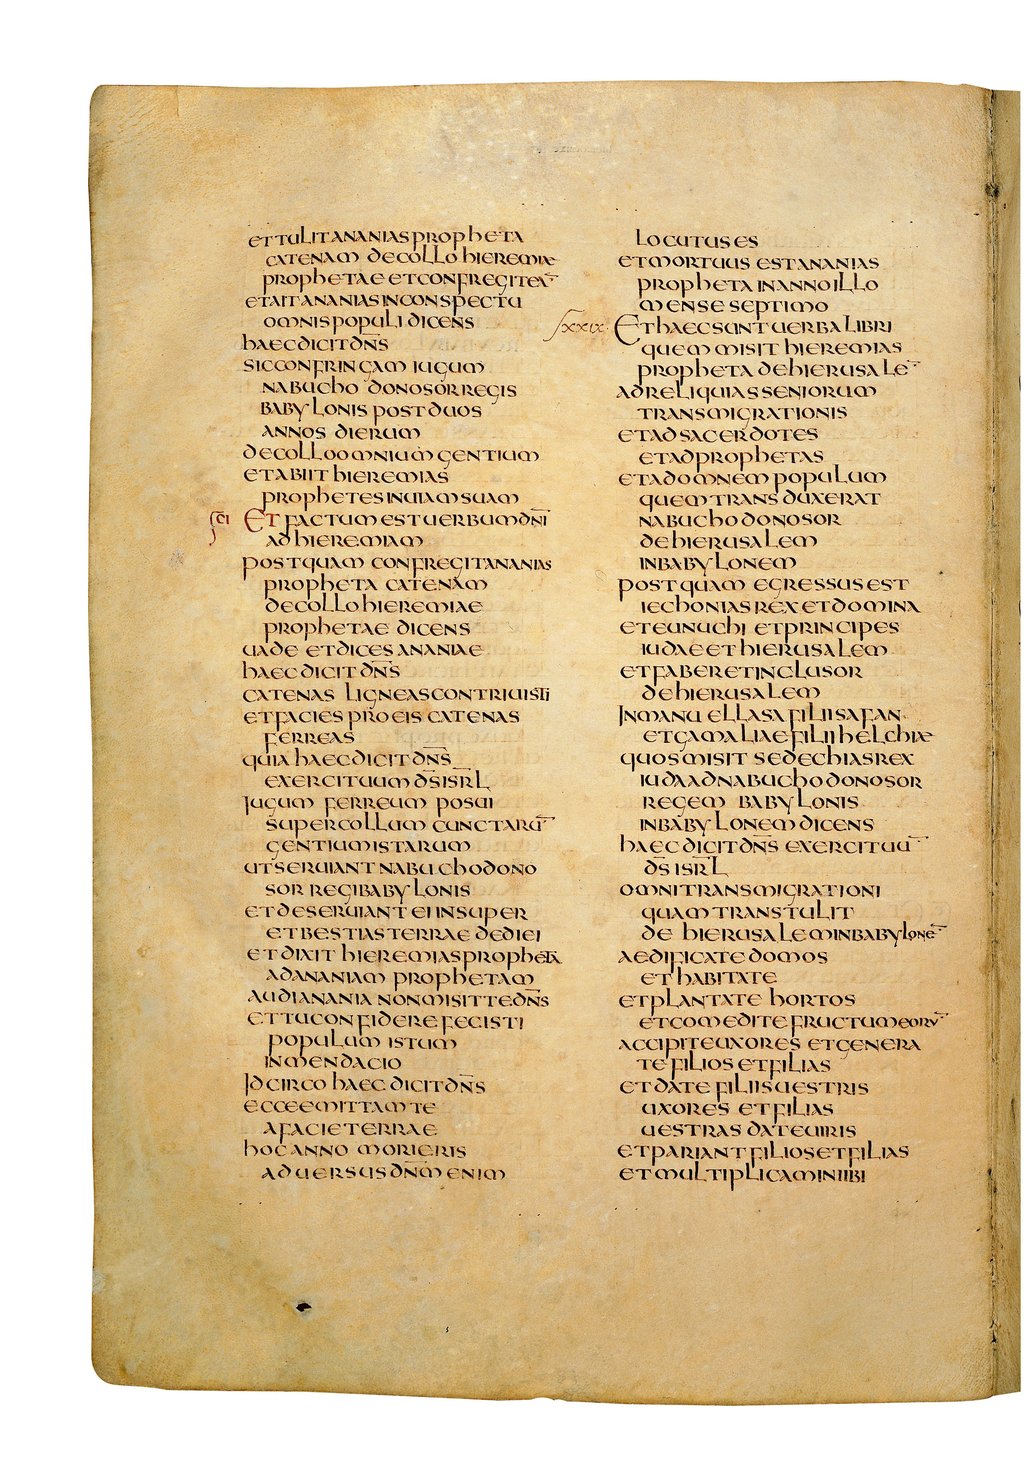 ETTULITANANIASPROPHETA
CATENAM DECOLLO HIEREMIAE
PROPHETAE ETCONFREGITEA¯
ETAITANANIASINCONSPECTU
OMNISPOPULI DICENS
HAECDICITDN̄S
SICCONFRINGAM IUGUM
NABUCHO DONOSORREGIS
BABYLONIS POSTDUOS
ANNOS DIERUM
DECOLLOOMNIUMGENTIUM
ETABIIT HIEREMIAS
PROPHETESINUIAMSUAM
ETFACTUMESTUERBUMDN̄I
ADHIEREMIAM
POSTQUAM CONFREGITANANIAS
PROPHETA CATENAM
DECOLLOHIEREMIAE
PROPHETAE DICENS
UADE ETDICES ANANIAE
HAECDICITDN̄S
CATENAS LIGNEASCONTRIUISTI
ETFACIES PROEIS CATENAS
FERREAS
QUIA HAECDICITDN̄S
EXERCITUUM D̄SISR̄L
IUGUM FERREUM POSUI
SUPERCOLLUM CUNCTARU¯
GENTIUMISTARUM
UTSERUIANTNABUCHODONO
SOR REGIBABYLONIS
ETDESERUIANT EIINSUPER
ETBESTIASTERRAE DEDIEI
ETDIXIT HIEREMIASPROPHETA
ADANANIAM PROPHETAM
AUDIANANIA NONMISITTEDN̄S
ETTUCONFIDEREFECISTI
POPULUM ISTUM
INMENDACIO
IDCIRCO HAECDICITDN̄S
ECCEEMITTAMTE
AFACIETERRAE
HOCANNO MORIERIS
ADUERSUSDN̄MENIM
LOCUTUSES
ETMORTUUS ESTANANIAS
PROPHETA INANNOILLO
MENSESEPTIMO
XXIX ETHAECSUNTUERBALIBRI
QUEMMISIT HIEREMIAS
PROPHETA DEHIERUSALE¯
ADRELIQUIASSENIORUM
TRANSMIGRATIONIS
ETADSACERDOTES
ETADPROPHETAS
ETADOMNEMPOPULUM
QUEMTRANSDUXERAT
NABUCHODONOSOR
DEHIERUSALEM
INBABYLONEM
POSTQUAM EGRESSUSEST
IECHONIASREXETDOMINA
ETEUNUCHI ETPRINCIPES
IUDAEETHIERUSALEM
ETFABERETINCLUSOR
DEHIERUSALEM
INMANU ELLASAFILIISAFAN
ETGAMALIAEFILIIHELCHIAE
QUOSMISIT SEDECHIASREX
IUDAADNABUCHODONOSOR
REGEM BABYLONIS
INBABYLONEMDICENS
HAECDICITDN̄S EXERCITUU¯
D̄S ISR̄L
OMNITRANSMIGRATIONI
QUAMTRANSTULIT
DE HIERUSALEMINBABYLONE¯
AEDIFICATEDOMOS
ETHABITATE
ETPLANTATE HORTOS
ETCOMEDITEFRUCTUMEORU¯
ACCIPITEUXORES ETGENERA
TEFILIOSETFILIAS
ETDATE FILIISUESTRIS
UXORES ETFILIAS
UESTRAS DATEUIRIS
ETPARIANTFILIOSETFILIAS
ETMULTIPLICAMINIIBI